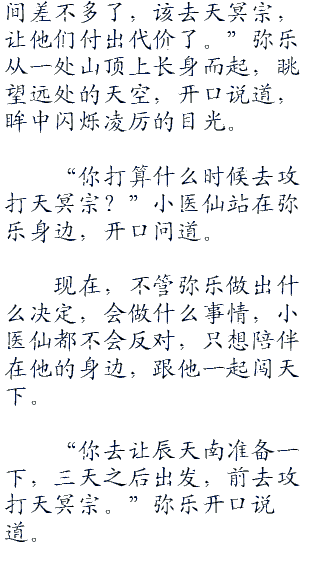 间差不多了，该去天冥宗，
让他们付出代价了。”弥乐
从一处山顶上长身而起，眺
望远处的天空，开口说道，
眸中闪烁凌厉的目光。
“你打算什么时候去攻
打天冥宗？”小医仙站在弥
乐身边，开口问道。
现在，不管弥乐做出什
么决定，会做什么事情，小
医仙都不会反对，只想陪伴
在他的身边，跟他一起闯天
下。
“你去让辰天南准备一
下，三天之后出发，前去攻
打天冥宗。”弥乐开口说
道。